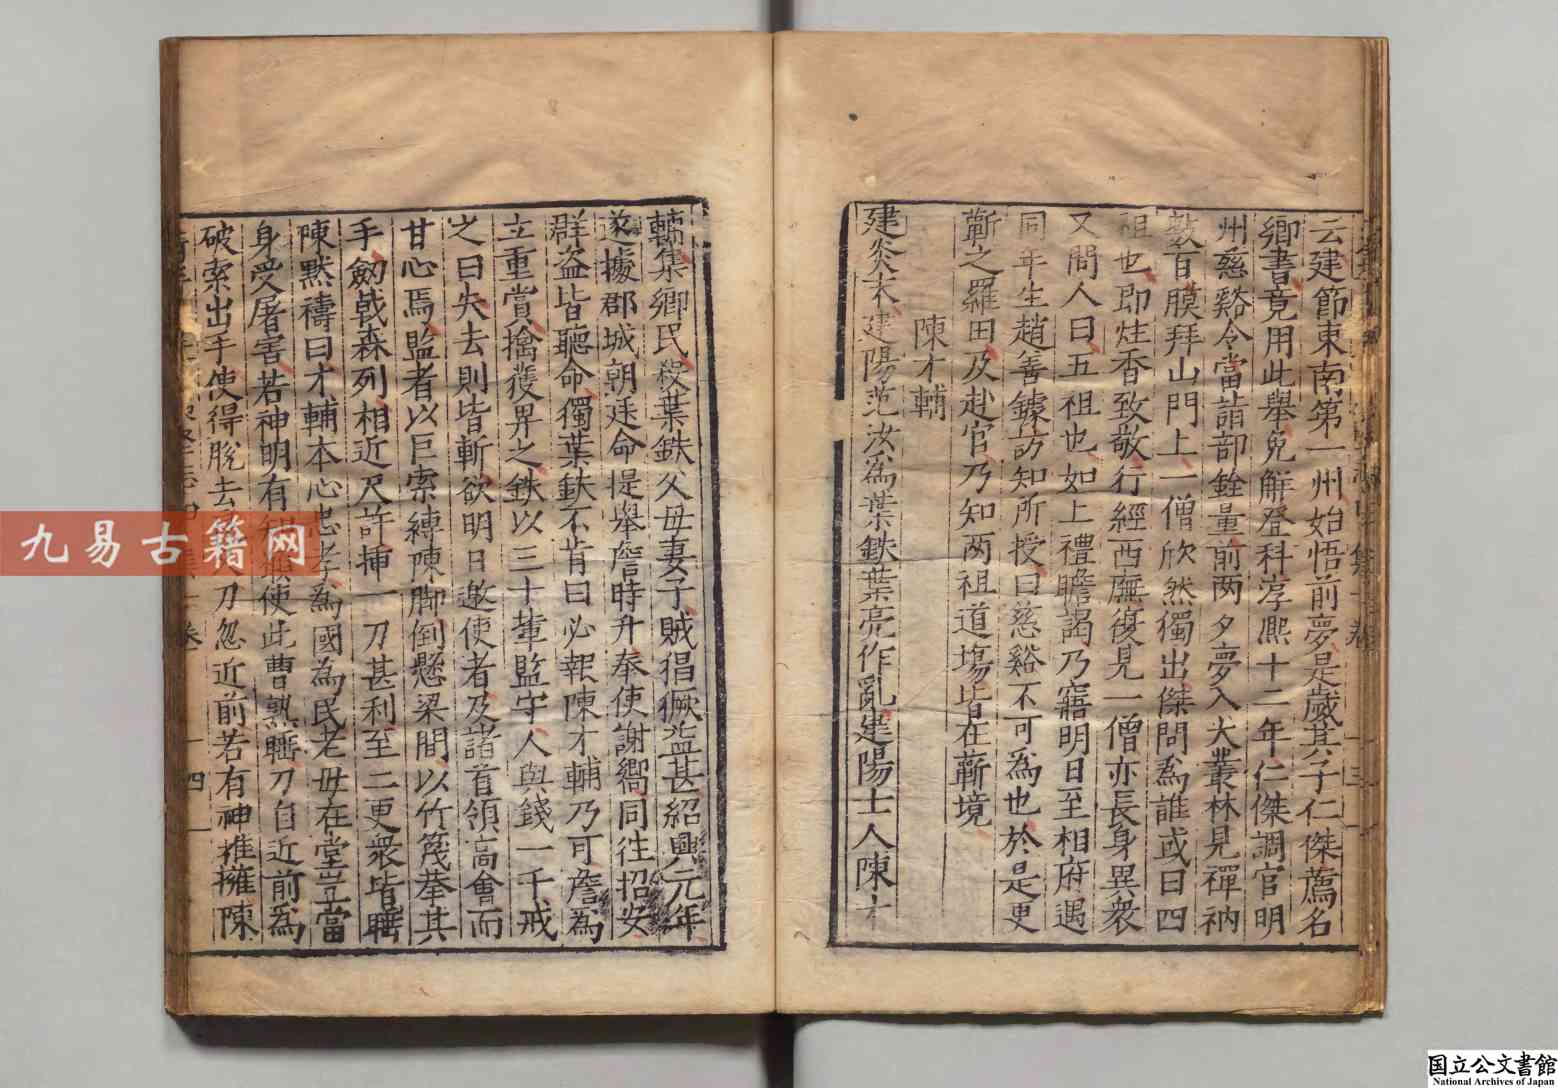 云建節東南第一州始悟前夢是歲其子仁傑薦名
鄉書竟用此舉免解登科淳熙十二年仁傑調官明
州慈谿令當詣部銓量前兩夕夢入大叢林見禪衲
數百膜拜山門上一僧欣然獨出傑問為誰或曰四
祖也即炷香致敬行經西廡復見一僧亦長身異衆
又問人曰五祖也如上禮瞻謁乃寤明日至相府遇
同年生趙善鐻訪知所授曰慈谿不可為也於是更
蘄之羅田及赴官乃知兩祖道場皆在蘄境
陳才輔
建炎末建陽范汝為葉鉄葉亮作亂建陽士人陳才
輔集鄉民殺葉鉄父母妻子賊猖獗益甚紹興元年
遂據郡城朝廷命提舉詹時升奉使謝嚮同往招安
群盗皆聽命獨葉鉄不肯曰必報陳才輔乃可詹為
立重賞擒獲畀之鉄以三十輩監守人與錢一千戒
之曰失去則皆斬欲明日邀使者及諸首領高會而
甘心焉監者以巨索縛陳脚倒懸梁間以竹篾拲其
手劒戟森列相近尺許揷一刀甚利至二更衆皆睡
陳黙禱曰才輔本心忠孝為國為民老母在堂豈當
身受屠害若神明有使此曹熟睡刀自近前為
破索出手使得脫去刀忽近前若有神推擁陳
十四
九易古籍网
国立公文書館
National Archives of Japan